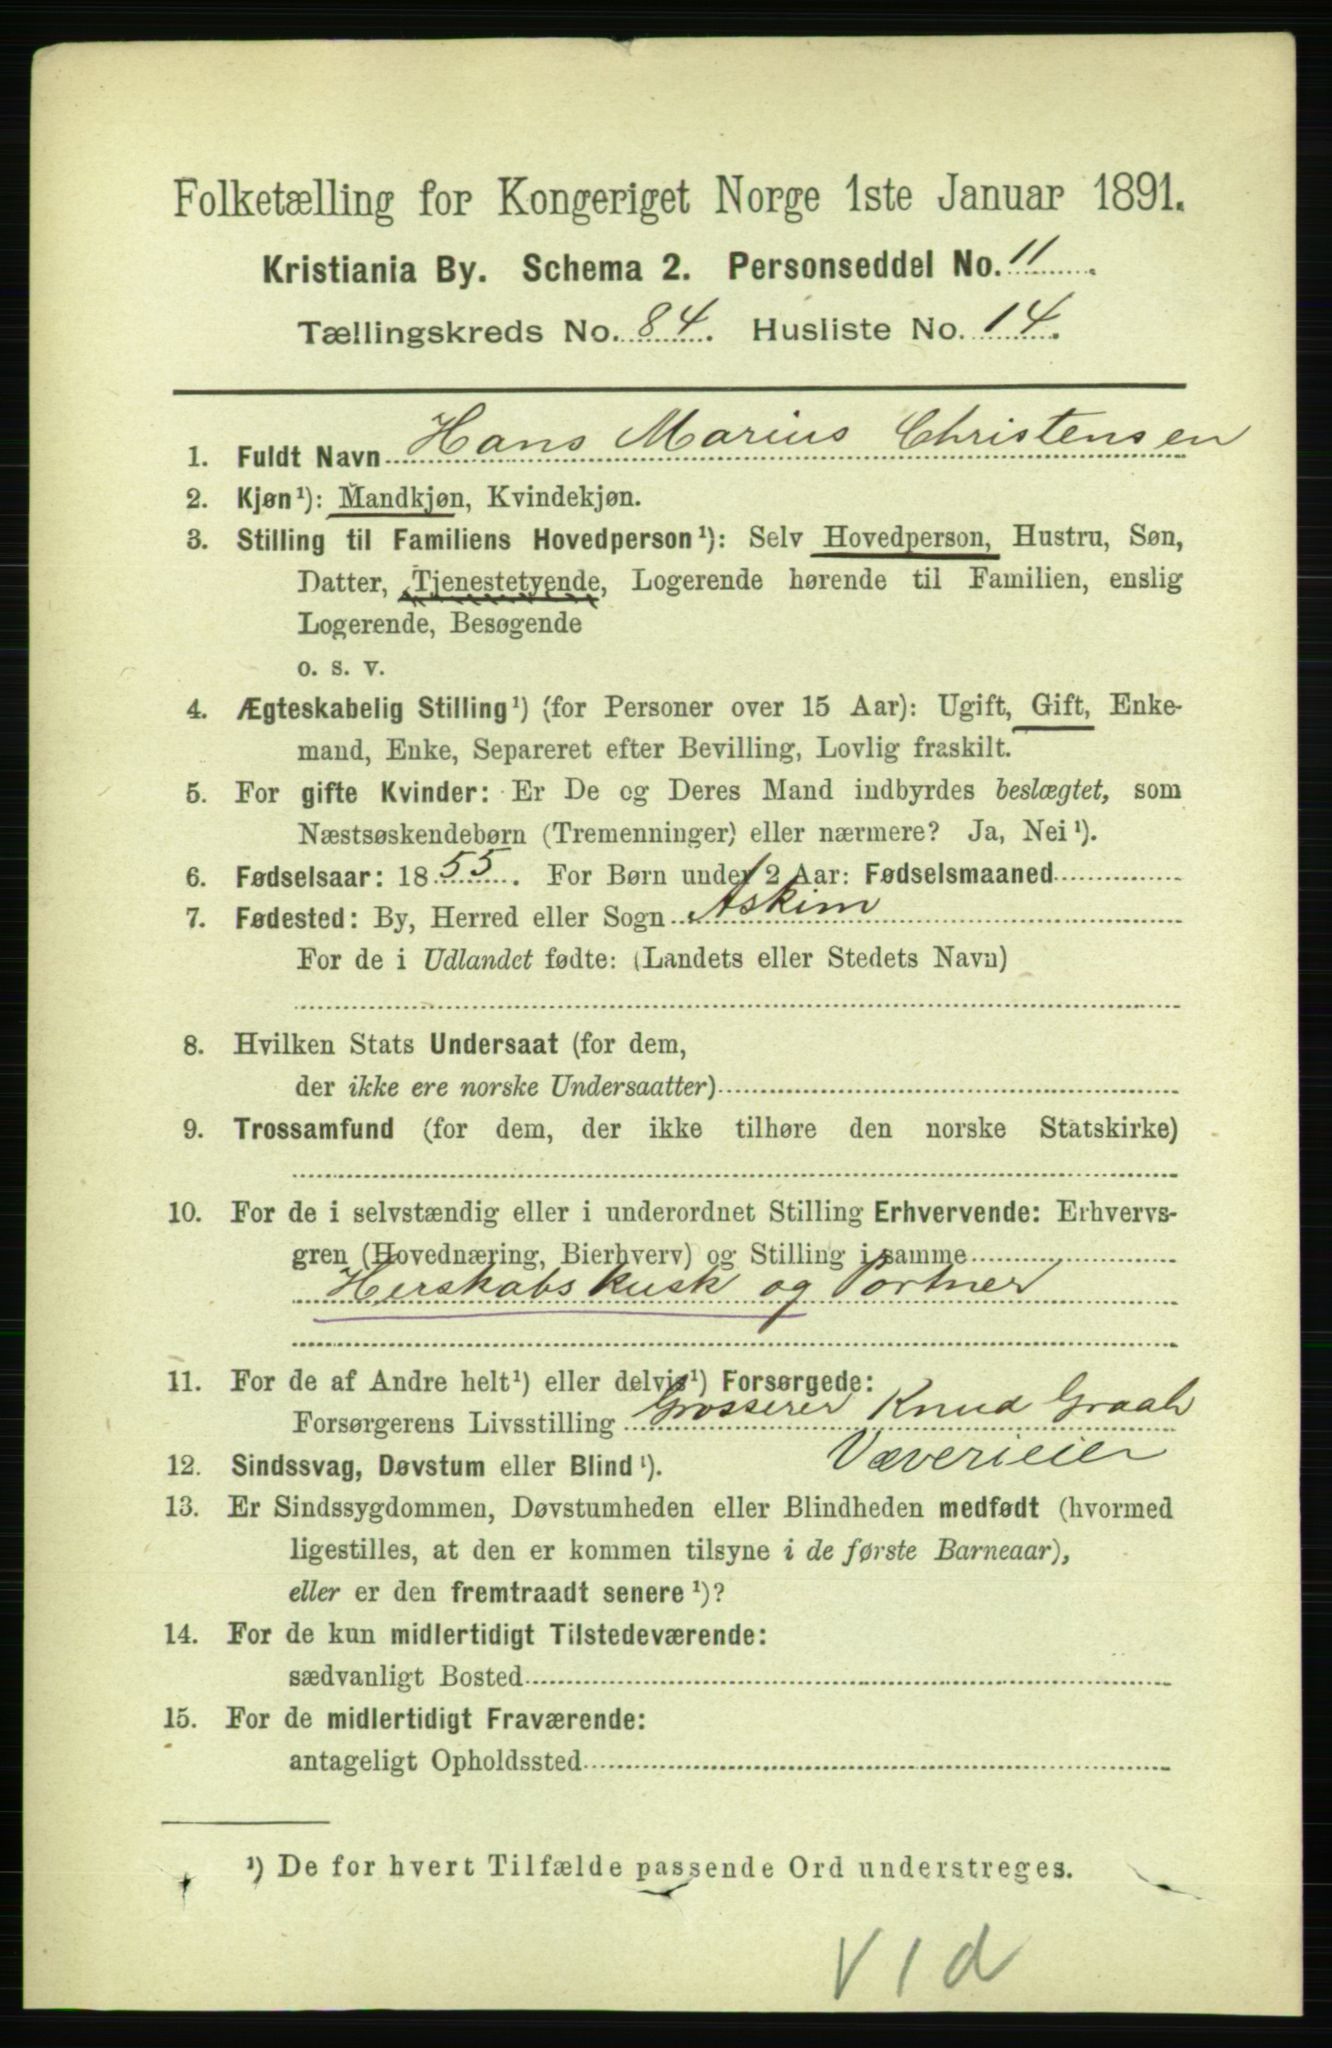 Folketælling for Kongeriget Norge 1ste Januar 1891.
Kristiania By. Schema 2. Personseddel No. 11
Tællingskreds No. 84. Husliste No. 14.
1. Fuldt Navn Hans Marius Christensen
2. Kjøn¹): Mandkjøn, Kvindekjøn.
3. Stilling til Familiens Hovedperson¹): Selv Hovedperson, Hustru, Søn,
Datter, Tjenestetyende, Logerende hørende til Familien, enslig
Logerende, Besøgende
o. s. v.
4. Ægteskabelig Stilling¹) (for Personer over 15 Aar): Ugift, Gift, Enke-
mand, Enke, Separeret efter Bevilling, Lovlig fraskilt.
5. For gifte Kvinder: Er De og Deres Mand indbyrdes beslægtet, som
Næstsøskendebørn (Tremenninger) eller nærmere? Ja, Nei¹).
6. Fødselsaar: 1855. For Børn under 2 Aar: Fødselsmaaned
7. Fødested: By, Herred eller Sogn Askim
For de i Udlandet fødte: (Landets eller Stedets Navn)
8. Hvilken Stats Undersaat (for dem,
der ikke ere norske Undersaatter)
9. Trossamfund (for dem, der ikke tilhøre den norske Statskirke)
10. For de i selvstændig eller i underordnet Stilling Erhvervende: Erhvervs-
gren (Hovednæring, Bierhverv) og Stilling i samme
Herskabskusk og Portner
11. For de af Andre helt¹) eller delvis¹) Forsørgede:
Forsørgerens Livsstilling Grosserer Knud Graah
Væverieier
12. Sindssvag, Døvstum eller Blind¹).
13. Er Sindssygdommen, Døvstumheden eller Blindheden medfødt (hvormed
ligestilles, at den er kommen tilsyne i de første Barneaar),
eller er den fremtraadt senere¹)?
14. For de kun midlertidigt Tilstedeværende:
sædvanligt Bosted
15. For de midlertidigt Fraværende:
antageligt Opholdssted
¹) De for hvert Tilfælde passende Ord understreges.
V1d